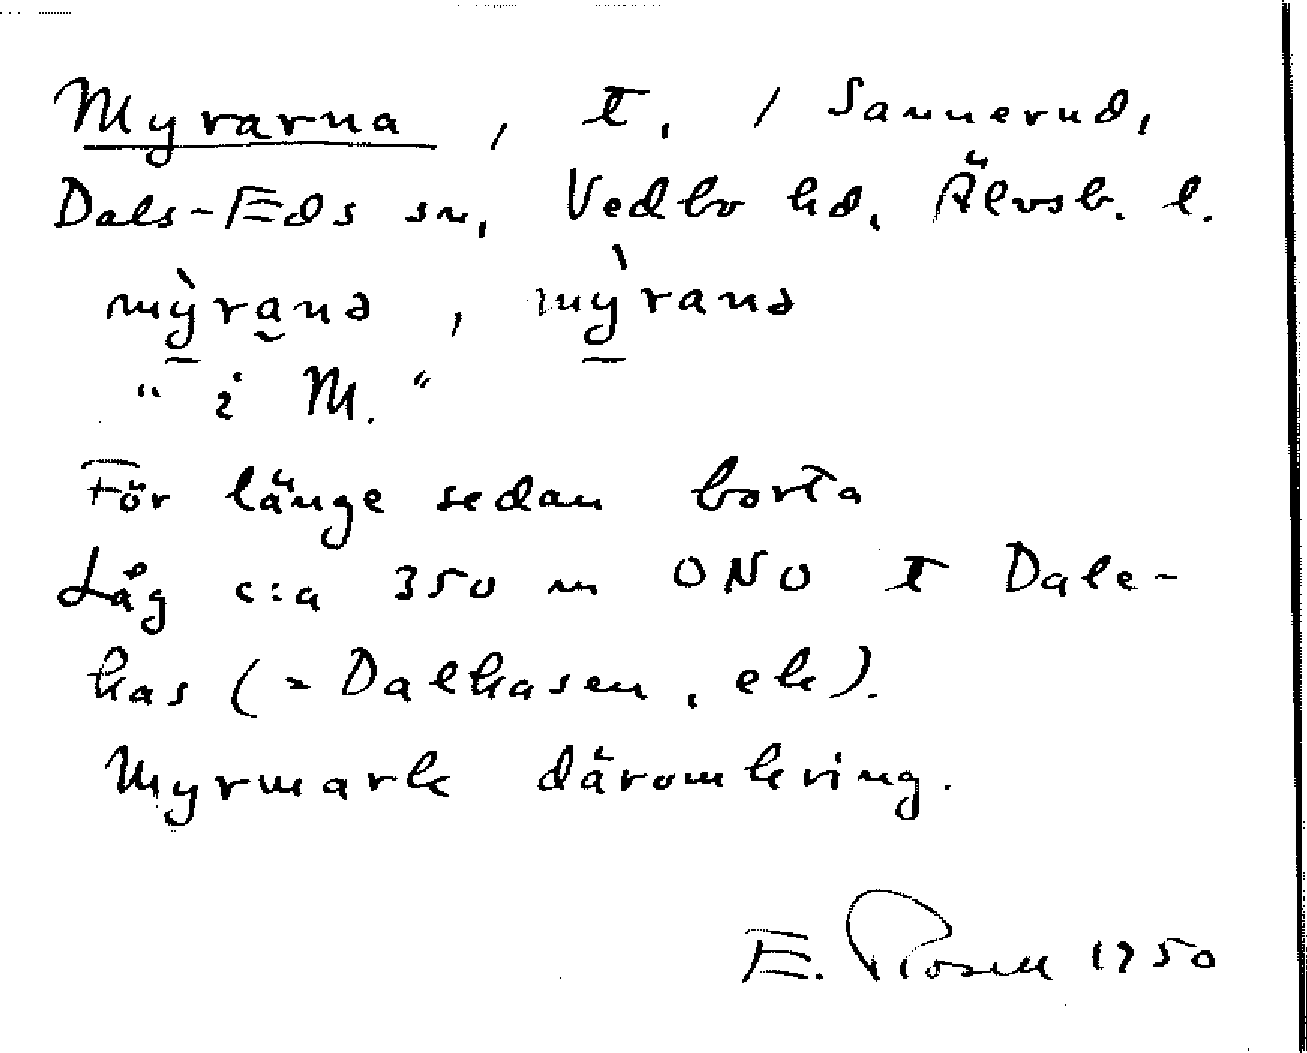 Myrarna, t, / Sannerud,
Dals-Eds sn, Vedbo hd, Älvsb. l.
mỳrana, mỳrana
"i M."
För länge sedan borta
Låg c:a 350 m ONO t Dale-
has (= Dalhasen, ek).
Myrmark däromkring.
E. Rosell 1950